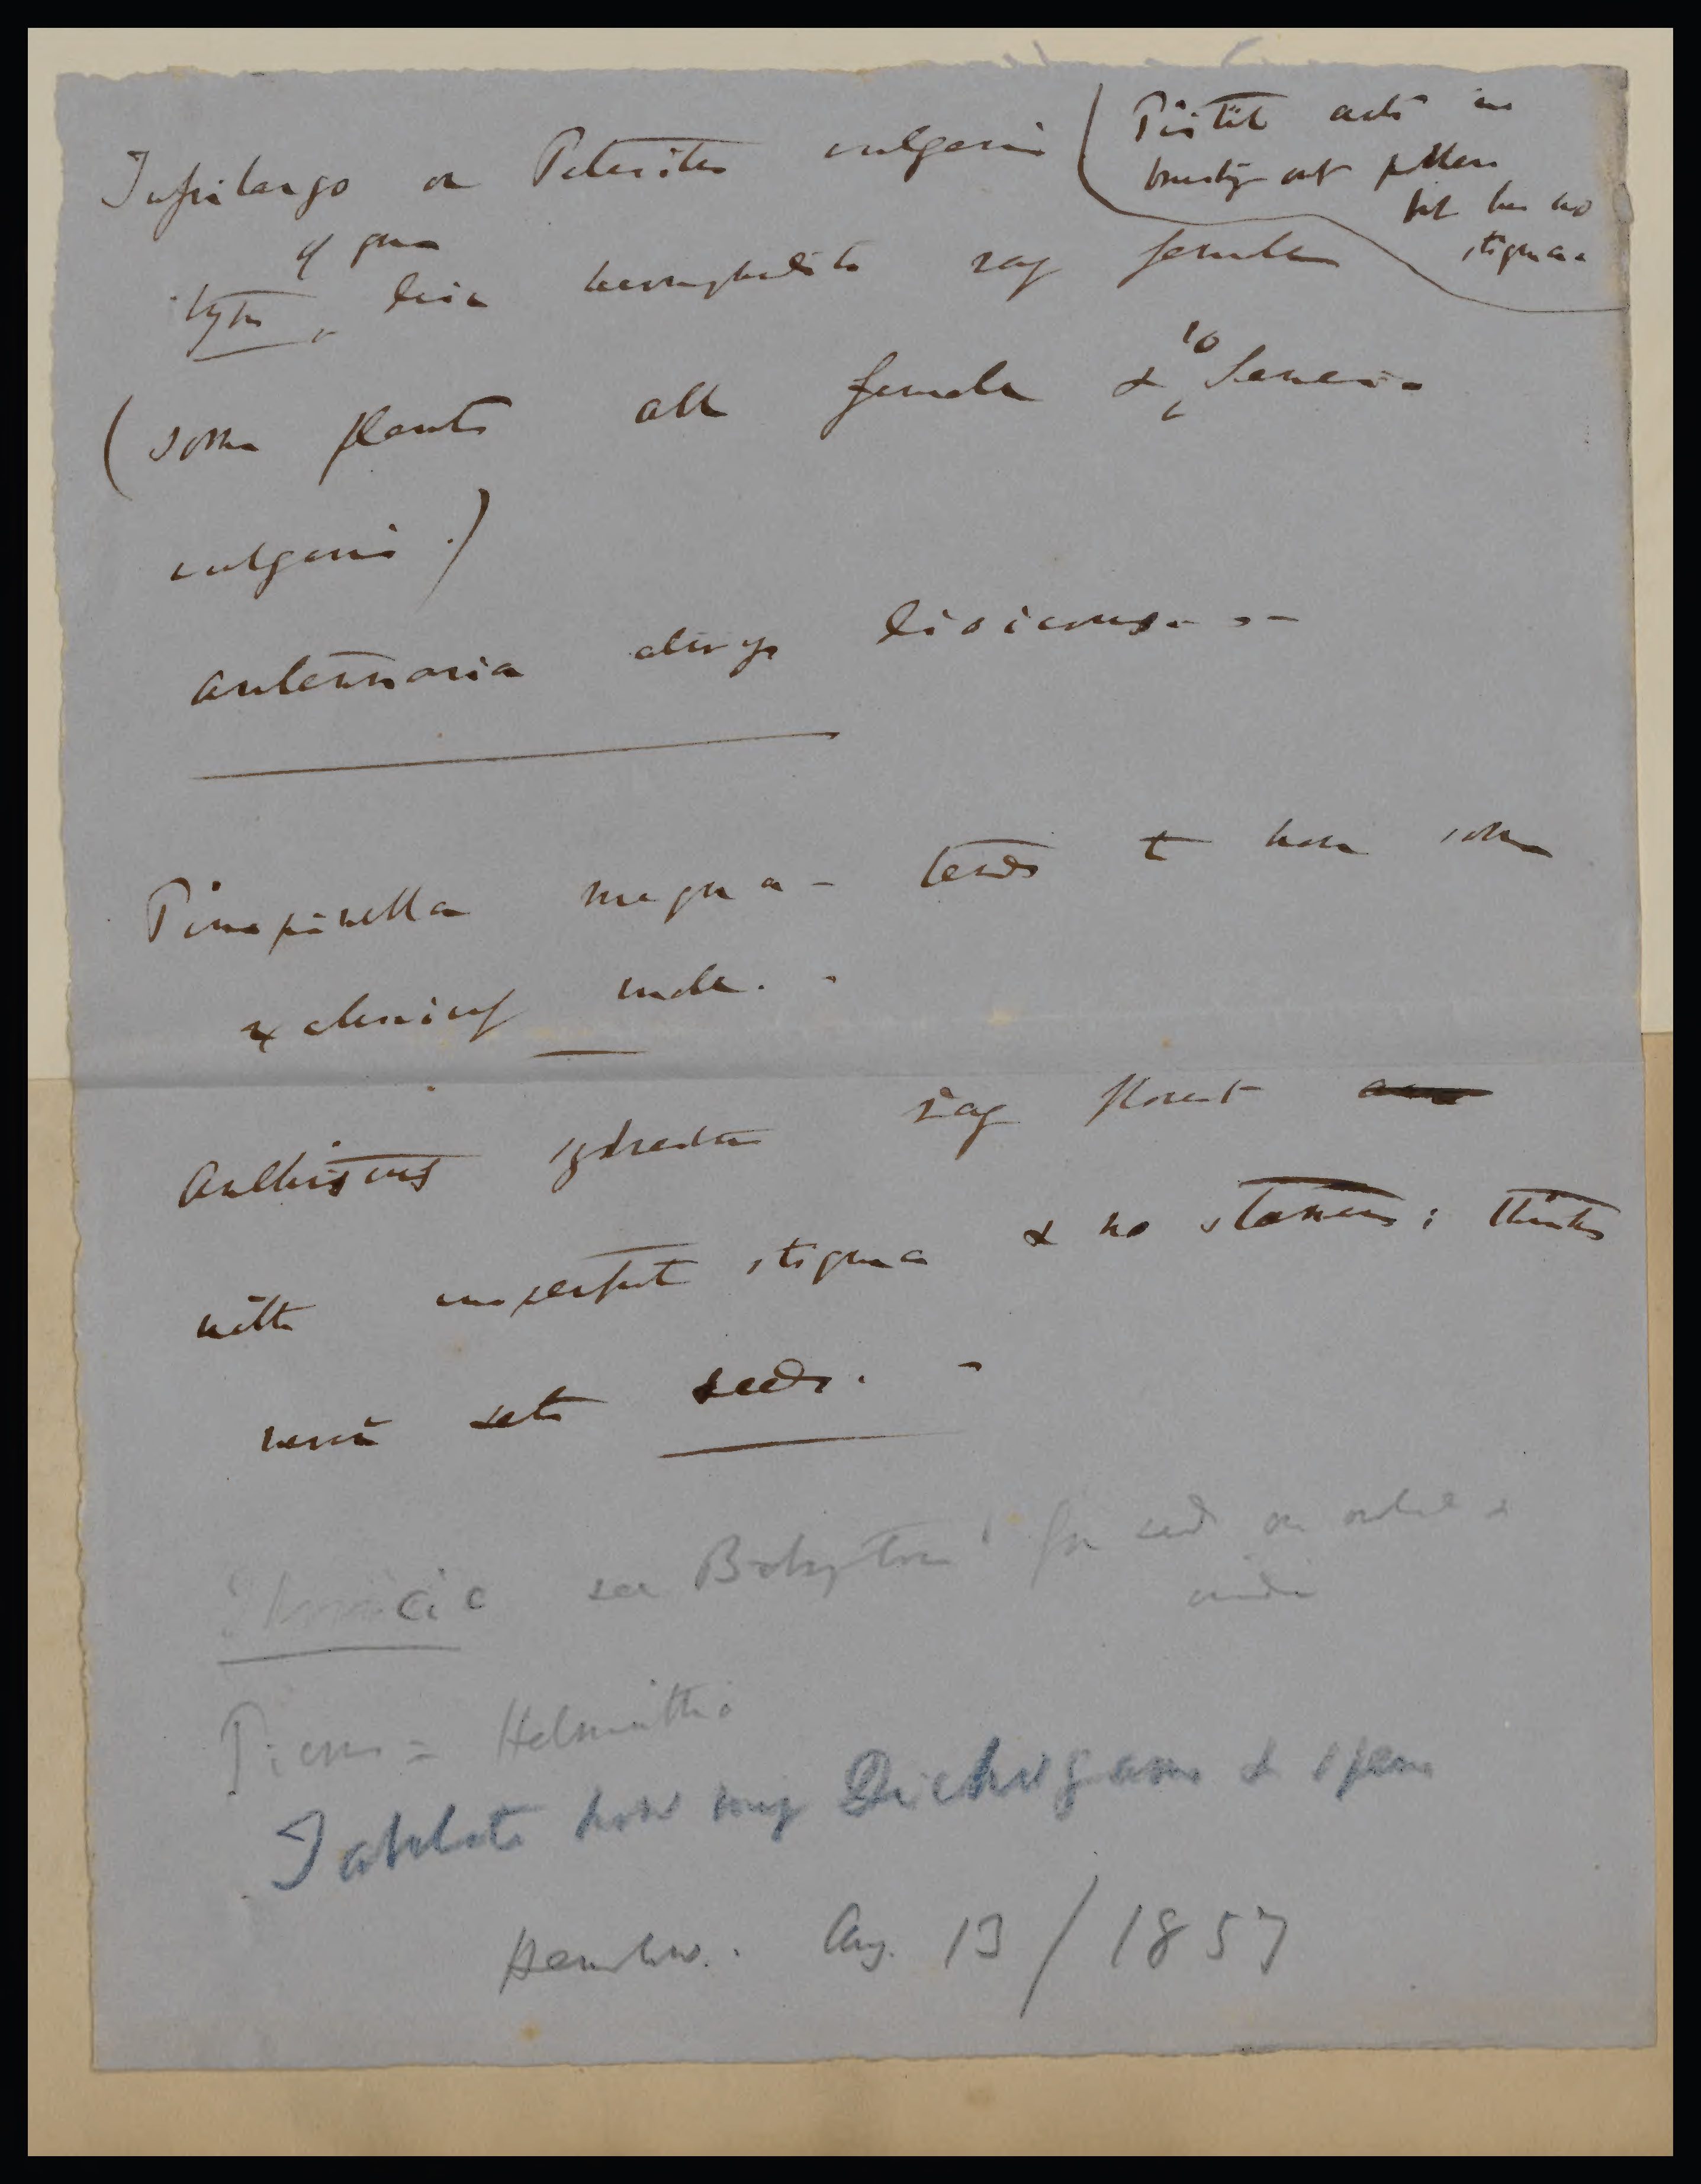 Tussilago or Petasites vulgaris (Pistil acts in
brushing out pollen
but has no
stigma.
of genus
type, disc hermaphrodite ray female
(some plants all female & so Senecio
vulgaris.)
Antennaria always dioicous. —
Pimpinella magna — tends to have some
exclusively male. —
Anthriscus sylvestris ray floret
with imperfect stigma & no stamens; thinks
never sets seeds. —
see Babington for seed on outside &
inside
Picris = Helminthia
Tabulate how many Dichogams & open
Henslow. Aug. 13 / 1857